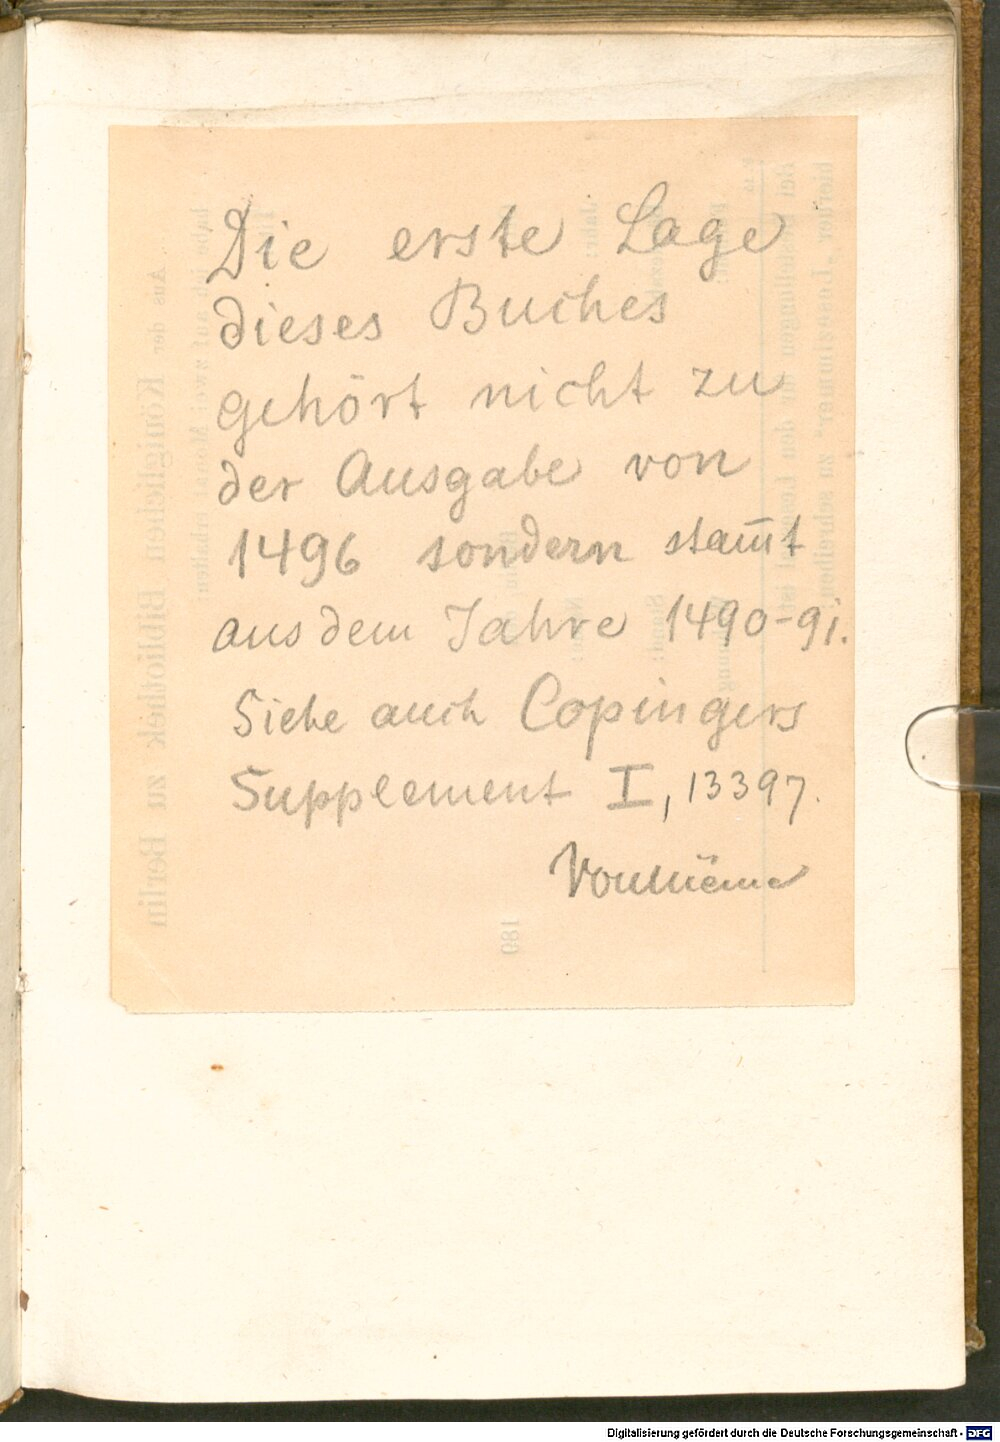 Die erste Lage
dieses Buches
gehört nicht zu
der Ausgabe von
1496 sondern stam̄t
aus dem Jahre 1490-91.
Siehe auch Copingers
Supplement I, 13397.
Voullième
Aus der Königlichen Bibliothek zu Berlin
189
Digitalisierung gefördert durch die Deutsche Forschungsgemeinschaft - DFG